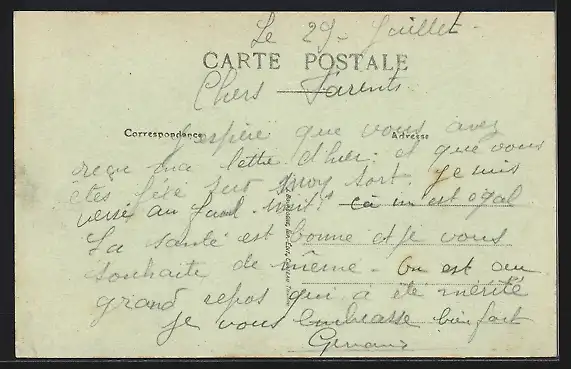 Le 29 Juillet
CARTE POSTALE
Chers Parents
Correspondance Adresse
J'espère que vous avez
reçu ma lettre d'hier. et que vous
êtes fixé sur mon sort. Je suis
versé au ça m'est egal
La santé est bonne et je vous
souhaite de même - On est au
grand repos qui a été mérité
Je vous embrasse bien fort